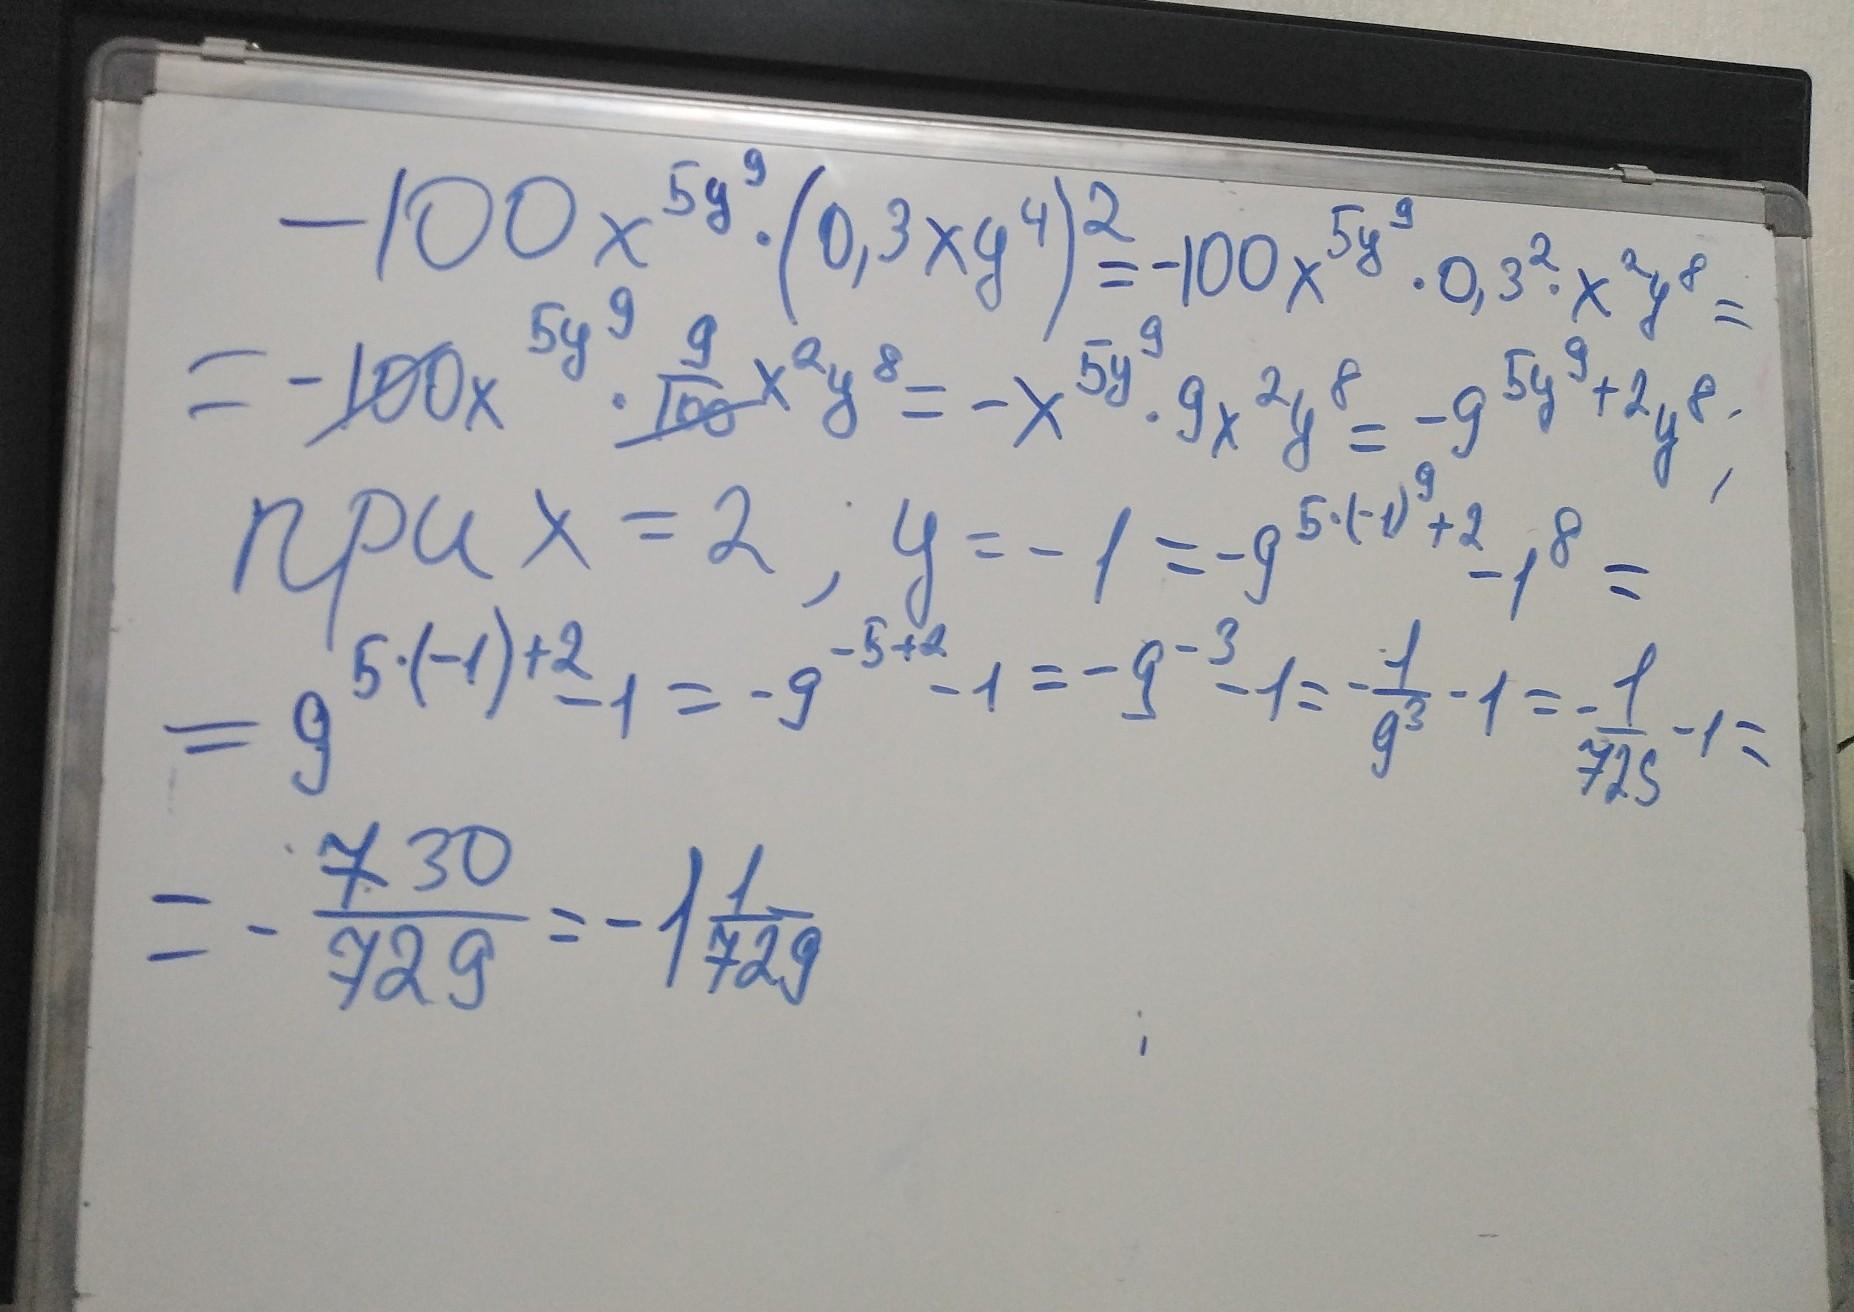 -100x^{5y^9}·(0,3xy^4)^2=-100x^{5y^9}·0,3^2·x^2y^8=
=-100x^{5y^9}·\frac{9}{100}x^2y^8=-x^{5y^9}·9x^2y^8=-9^{5y^9+2}y^8;
при x=2, y=-1=-9^{5·(-1)^9+2}-1^8=
=9^{5·(-1)+2}-1=-9^{-5+2}-1=-9^{-3}-1=-\frac{1}{9^3}-1=-\frac{1}{729}-1=
=-\frac{730}{729}=-1\frac{1}{729}